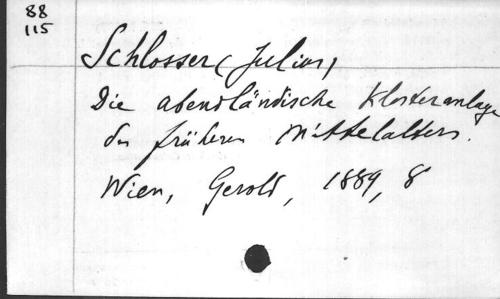 88
115
Schlosser (Julius)
Die abendländische Klosteranlage
des früheren Mittelalters.
Wien, Gerold, 1889, 8